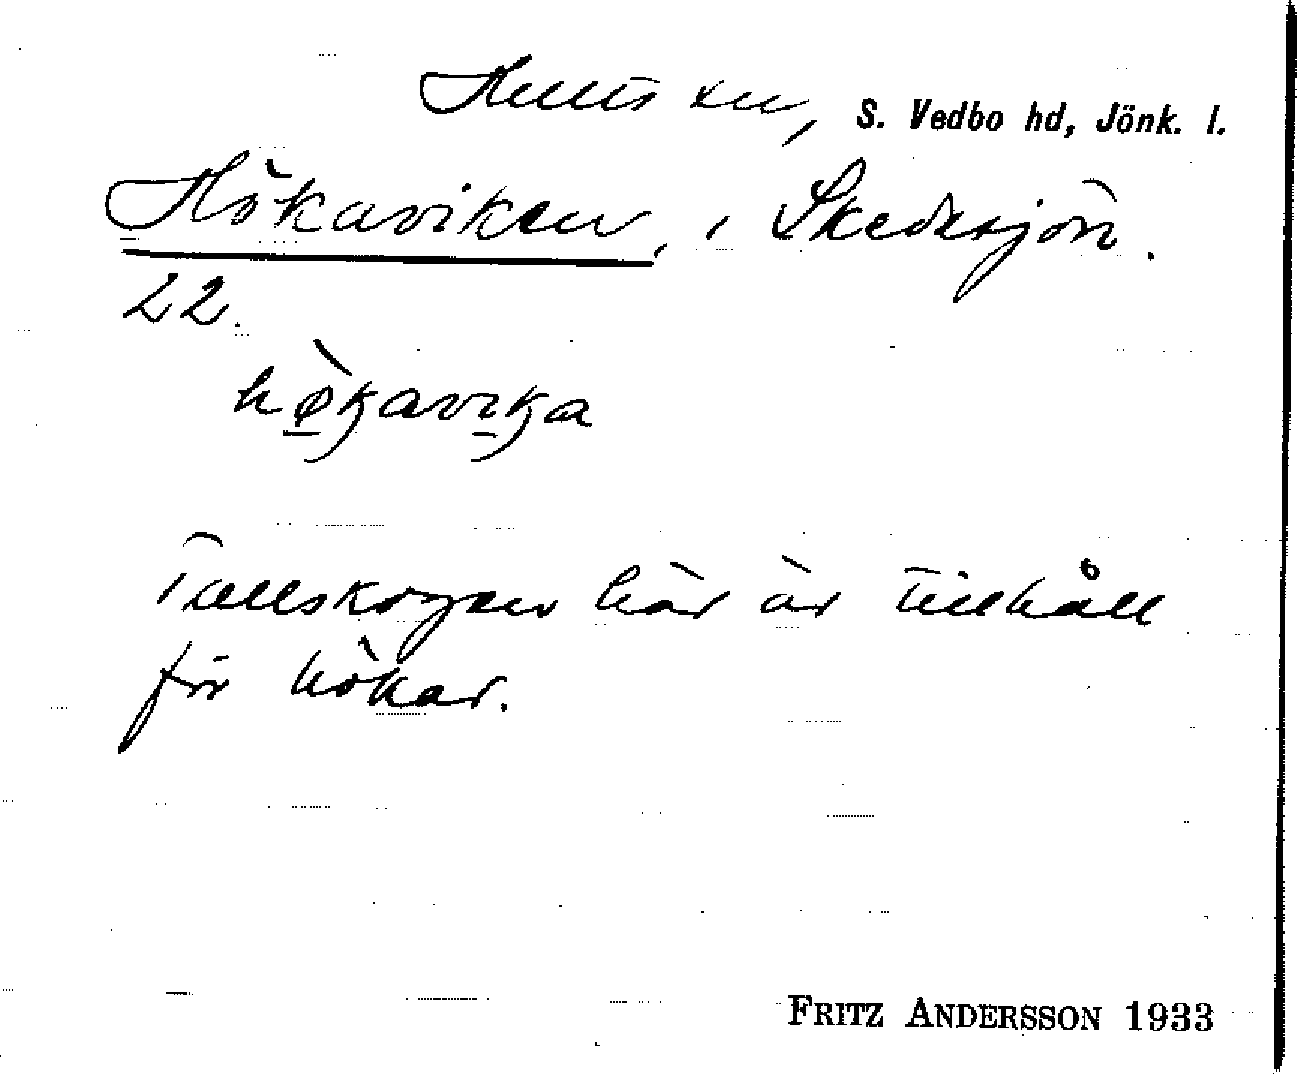 Hults sn, S. Vedbo hd, Jönk. l.
Hökaviken, i Skedesjön.
22.
hø̀kavika
Tallskogen här är tillhåll
för hökar.
FRITZ ANDERSSON 1933